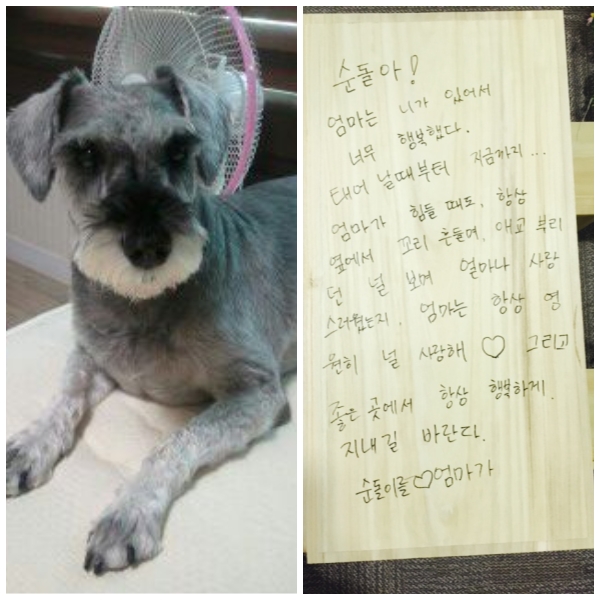 순돌아!
엄마는 니가 있어서
너무 행복했다.
태어 날때부터 지금까지...
엄마가 힘들 때도, 항상
옆에서 꼬리 흔들며, 애교 부리
던 널 보며 얼마나 사랑
스러웠는지. 엄마는 항상 영
원히 널 사랑해 ♡ 그리고
좋은 곳에서 항상 행복하게.
지내길 바란다.
순돌이를♡엄마가